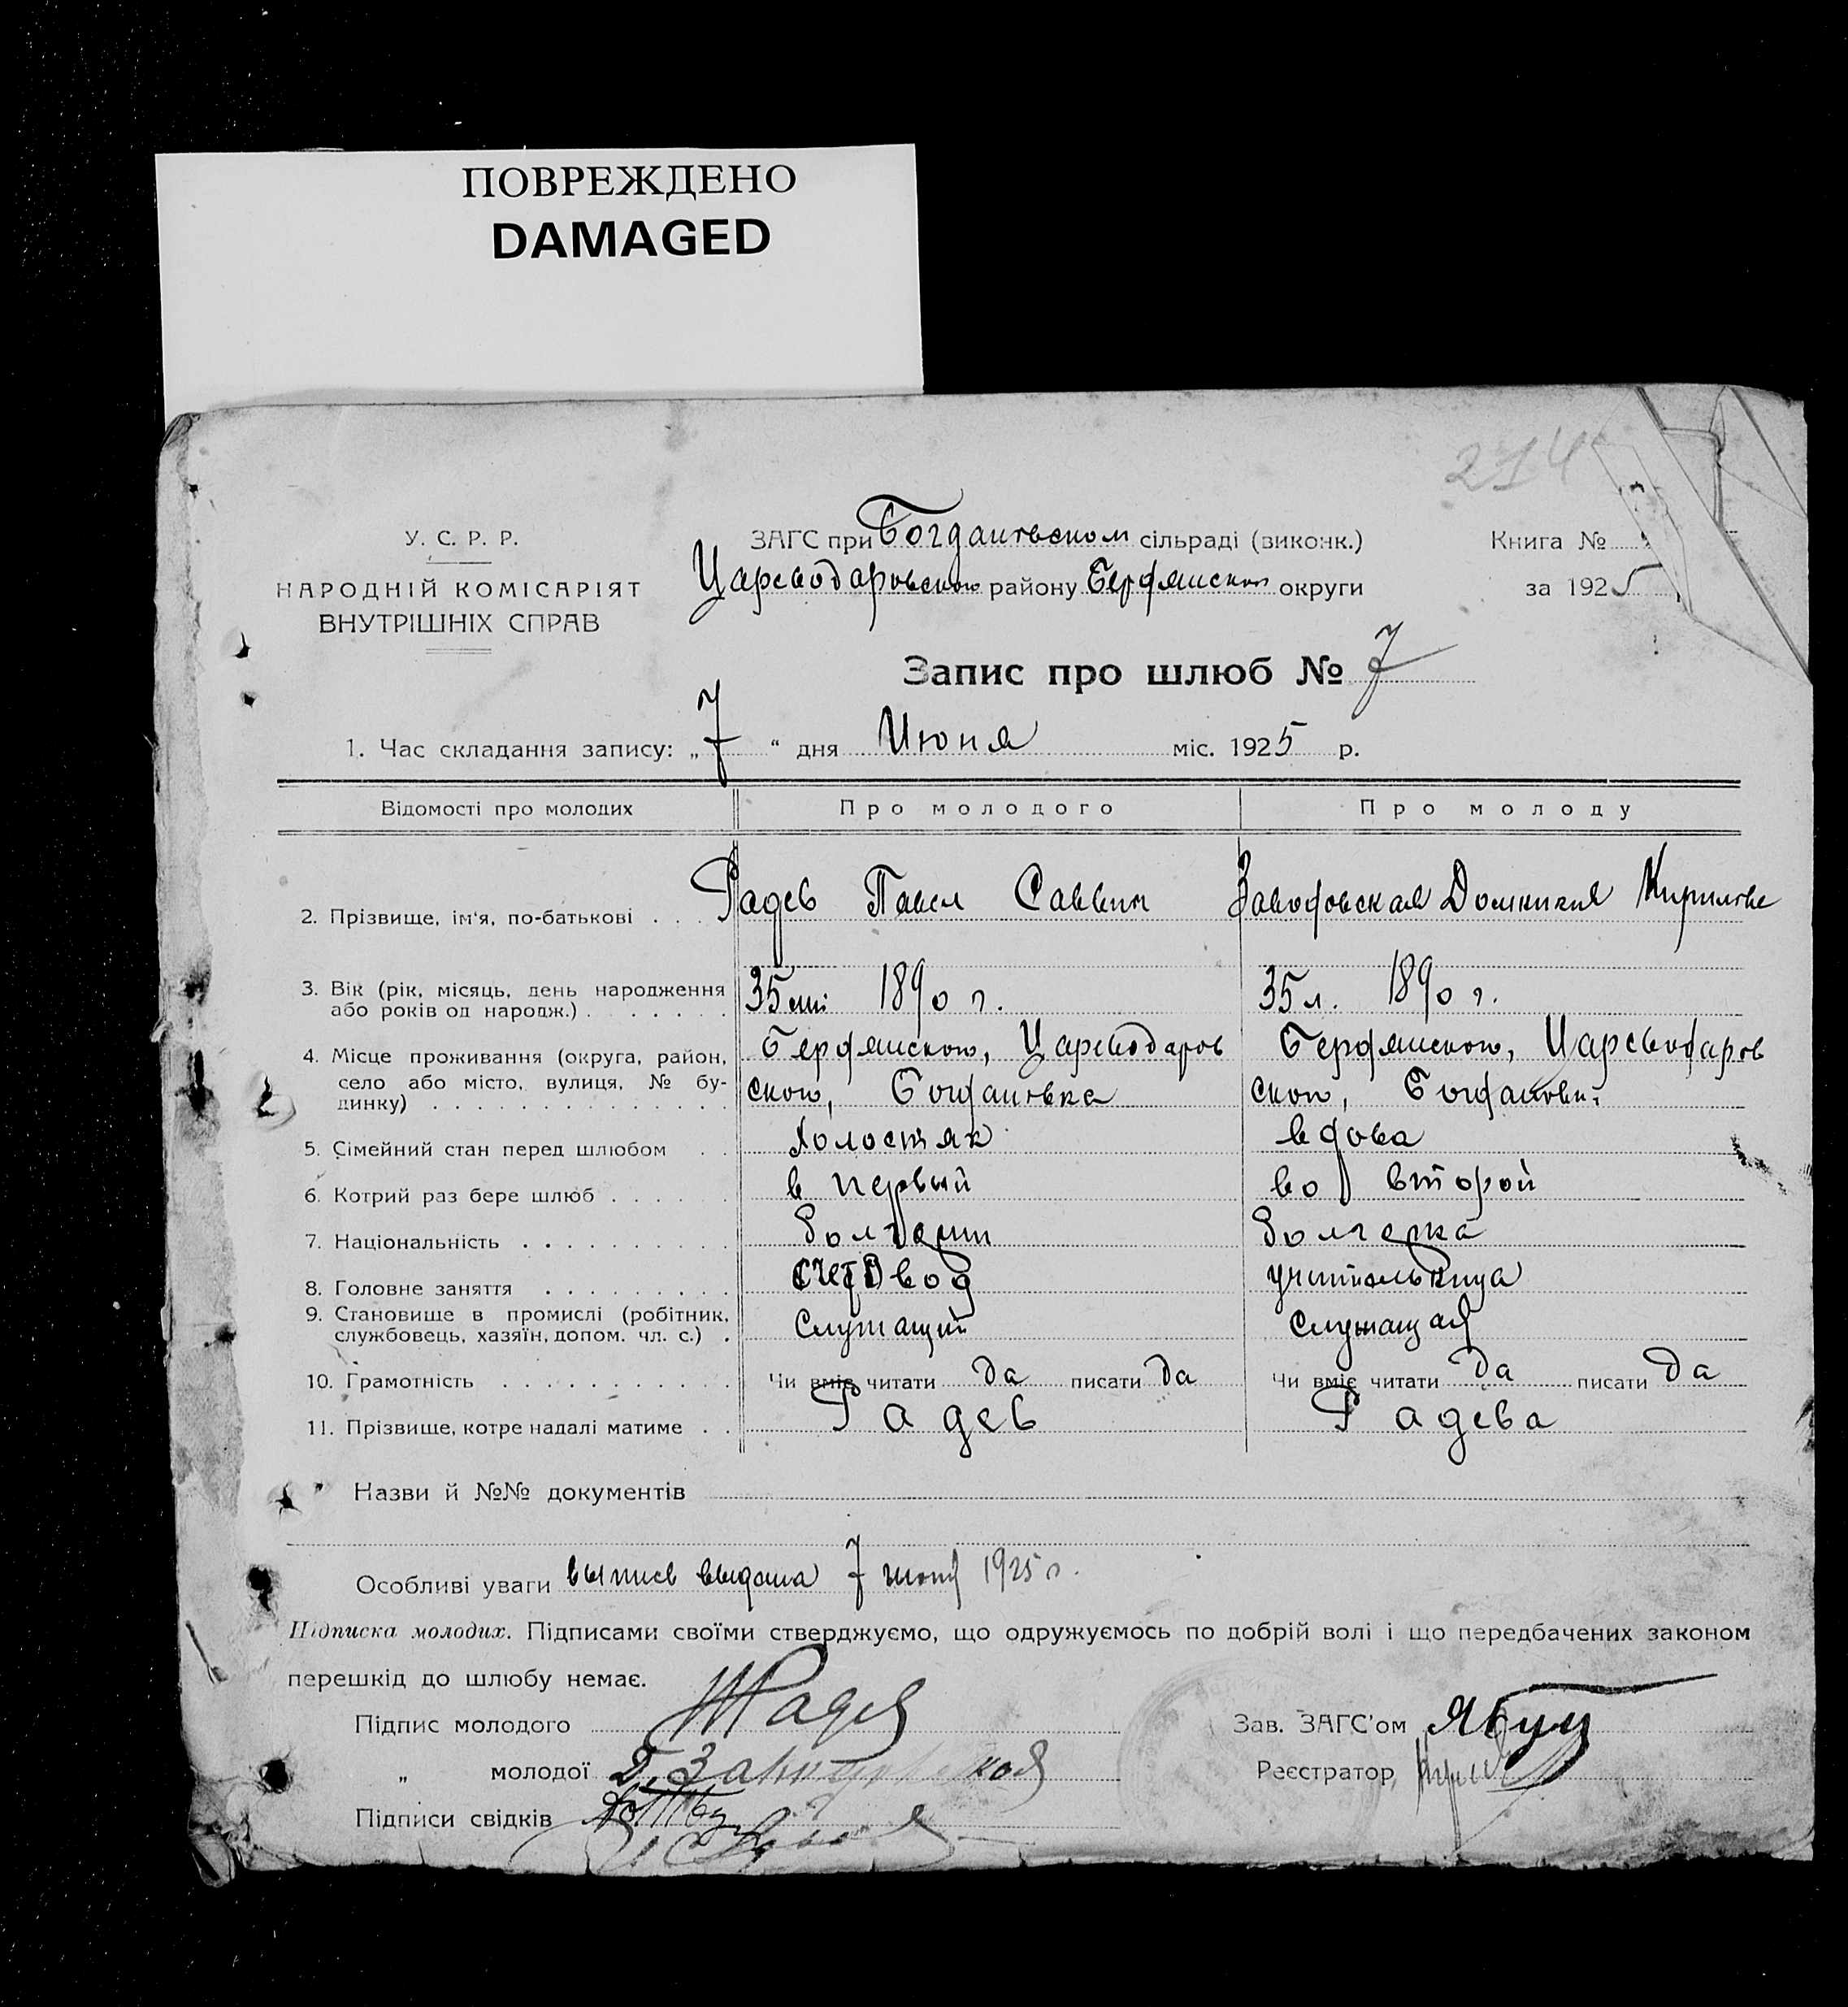 ПОВРЕЖДЕНО
DAMAGED
214
У. С. Р. Р.
НАРОДНІЙ КОМІСАРІЯТ
ВНУТРІШНІХ СПРАВ
ЗАГС при Богдановском сільраді (виконк.)
Царсводаровского району Бердянского округи
Книга №
за 1925
Запис про шлюб № 7
1. Час складання запису: „7“ дня Июня міс. 1925 р.
Відомості про молодих Про молодого Про молоду
2. Прізвище, ім'я, по-батькові . . . Радев Павел Саввич Заводовская Домникия Кирилове
3. Вік (рік, місяць, день народження або років од народж.) . . . . . . . 35 лет 1890 г. 35 л. 1890 г.
4. Місце проживання (округа, район, Бердянского, Царсводаров Бердянского, Царсводаров
село або місто, вулиця, № бу- ского, Богдановка ского, Богдановк.
динку) . . . . . . . . . . . . . .
5. Сімейний стан перед шлюбом . . холостяк вдова
6. Котрий раз бере шлюб . . . . . . в первый во второй
7. Національність . . . . . . . . . . болгарин болгарка
8. Головне заняття . . . . . . . . . счетовод учительница
9. Становище в промислі (робітник,
службовець, хазяїн, допом. чл. с.) . служащий служащая
10. Грамотність . . . . . . . . . . . Чи вміє читати да писати да Чи вміє читати да писати да
11. Прізвище, котре надалі матиме . . Радев Радева
Назви й №№ документів
Особливі уваги выпись выдана 7 июня 1925 г.
Підписка молодих. Підписами своїми стверджуємо, що одружуємось по добрій волі і що передбачених законом
перешкід до шлюбу немає.
Підпис молодого ПРадев
Зав. ЗАГС'ом
„ молодої Д. Заводовская
Реєстратор
Підписи свідків